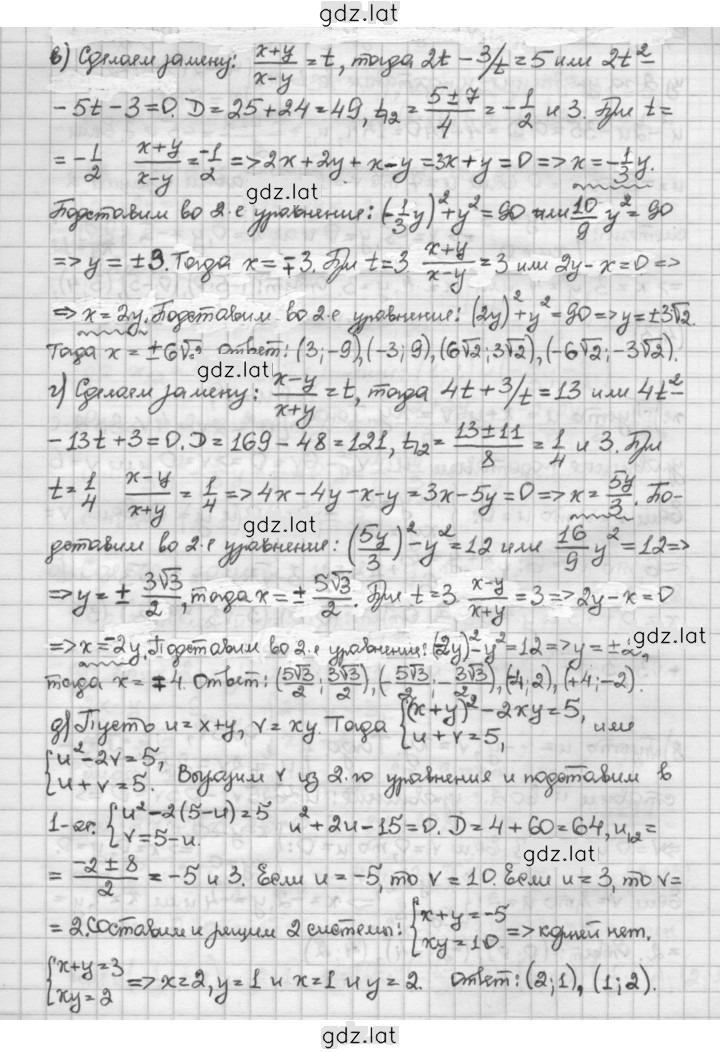 gdz.lat
в) Сделаем замену: (x+y)/(x-y) = t, тогда 2t - 3/t = 5 или 2t² -
- 5t - 3 = 0. D = 25 + 24 = 49, t₁₂ = (5±7)/4 = -1/2 и 3. При t =
= -1/2 (x+y)/(x-y) = -1/2 => 2x + 2y + x - y = 3x + y = 0 => x = -1/3 y.
gdz.lat
Подставим во 2-е уравнение: (-1/3 y)² + y² = 90 или 10/9 y² = 90
=> y = ±9. Тогда x = ∓3. При t = 3 (x+y)/(x-y) = 3 или 2y - x = 0 =>
=> x = 2y. Подставим во 2-е уравнение: (2y)² + y² = 90 => y = ±3√2.
Тогда x = ±6√2 Ответ: (3; -9), (-3; 9), (6√2; 3√2), (-6√2; -3√2).
gdz.lat
г) Сделаем замену: (x-y)/(x+y) = t, тогда 4t + 3/t = 13 или 4t² -
- 13t + 3 = 0. D = 169 - 48 = 121, t₁₂ = (13±11)/8 = 1/4 и 3. При
gdz.lat
t = 1/4 (x-y)/(x+y) = 1/4 => 4x - 4y - x - y = 3x - 5y = 0 => x = 5y/3. По-
дставим во 2-е уравнение: (5y/3)² - y² = 12 или 16/9 y² = 12 =>
=> y = ± 3√3/2, тогда x = ± 5√3/2. При t = 3 (x-y)/(x+y) = 3 => 2y - x = 0
=> x = -2y. Подставим во 2-е уравнение: (2y)² - y² = 12 => y = ±2,
gdz.lat
тогда x = ∓4. Ответ: (5√3/2; 3√3/2), (-5√3/2; -3√3/2), (-4; 2), (+4; -2).
д) Пусть u = x+y, v = xy. Тогда {(x+y)² - 2xy = 5, u + v = 5, или
gdz.lat
{u² - 2v = 5, u + v = 5. Выразим v из 2-го уравнения и подставим в
1-ое: {u² - 2(5-u) = 5 v = 5 - u. u² + 2u - 15 = 0. D = 4 + 60 = 64, u₁₂ =
gdz.lat
= (-2±8)/2 = -5 и 3. Если u = -5, то v = 10. Если u = 3, то v =
= 2. Составим и решим 2 системы: {x+y = -5 xy = 10 => корней нет.
{x+y = 3 xy = 2 => x = 2, y = 1 и x = 1 и y = 2. Ответ: (2; 1), (1; 2).
gdz.lat
gdz.lat